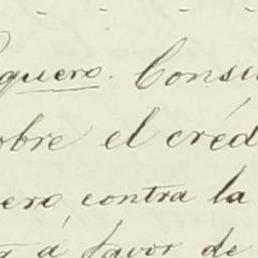 quero. Consu
obre el créd
ero contra la
á favor de